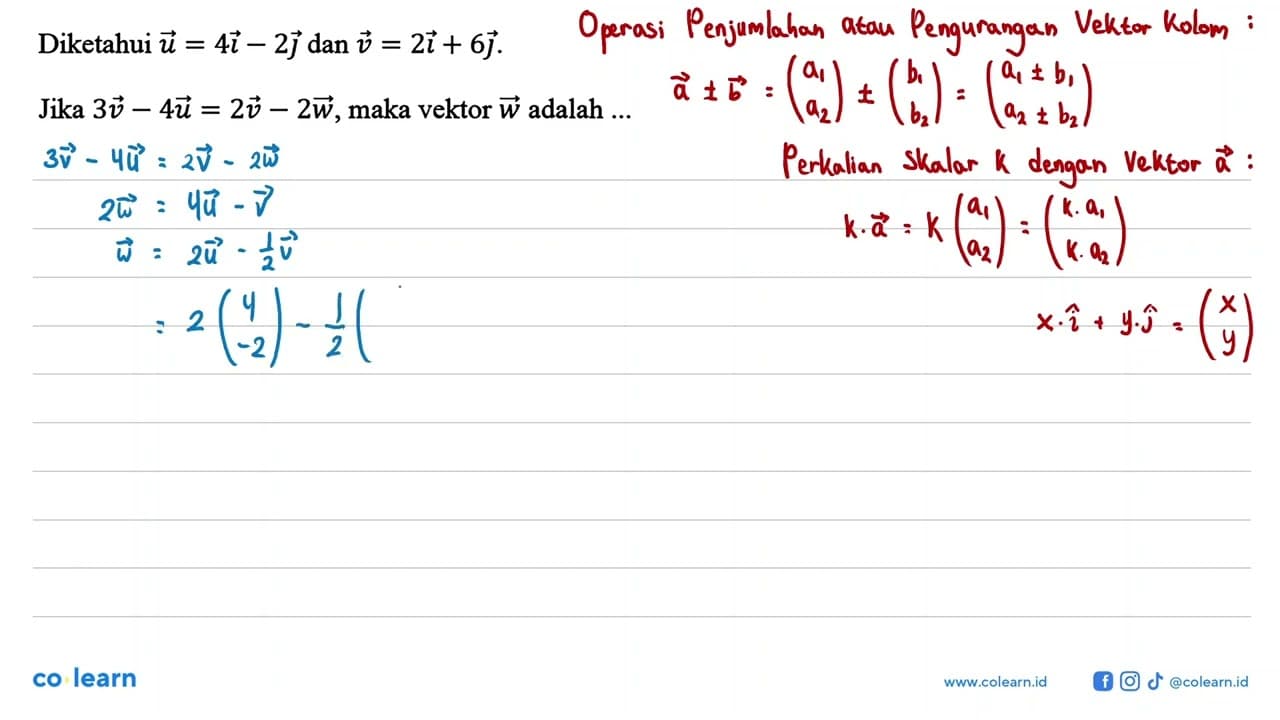 Diketahui u⃗ = 4i⃗ − 2j⃗ dan v⃗ = 2i⃗ + 6j⃗.
Jika 3v⃗ − 4u⃗ = 2v⃗ − 2w⃗, maka vektor w⃗ adalah ...
3v⃗ - 4u⃗ = 2v⃗ - 2w⃗
2w⃗ = 4u⃗ - v⃗
w⃗ = 2u⃗ - 1/2 v⃗
= 2 (4 -2) - 1/2 (
Operasi Penjumlahan atau Pengurangan Vektor Kolom :
a⃗ ± b⃗ = (a₁ a₂) ± (b₁ b₂) = (a₁ ± b₁ a₂ ± b₂)
Perkalian Skalar k dengan Vektor a⃗ :
k. a⃗ = k (a₁ a₂) = (k. a₁ k. a₂)
x. î + y. ĵ = (x y)
co learn
www.colearn.id
@colearn.id